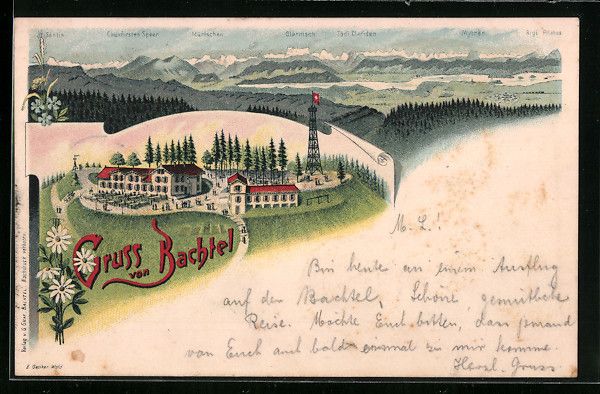 Säntis Churfirsten Speer Mürtschen Glärnisch Tödi Clariden Mythen Rigi Pilatus
Gruss
von Bachtel
M. L.!
Bin heute an einem Ausflug
auf den Bachtel, Schöne, gemütliche
Reise. Möchte Euch bitten, dass jemand
von Euch auch bald einmal zu mir komme.
Herzl. Gruss.